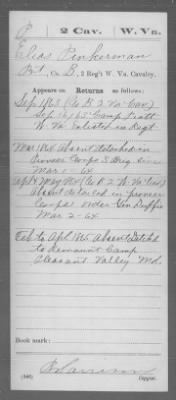 P 2 Cav. W. Va.
Elias Pinkerman
Pvt., Co. B, 2 Reg't W. Va. Cavalry.
Appears on Returns as follows:
Sep 1865 (Co B 2 Va Cav)
Sep 16/65 Camp Piatt
W. Va Enlisted in Regt
Mar 1864 Absent detached in
Pioneer Corps 3 Brig since
Mar 1-64
Apl & May 1864 (Co B 2 W. Va Cav)
absent detailed in pioneer
Corps order Gen Duffie
Mar 2-64
Feb to Apl 1865 absent Detchd
to Remount Camp
Pleasant Valley Md.
Book mark:
(546) Copyist.